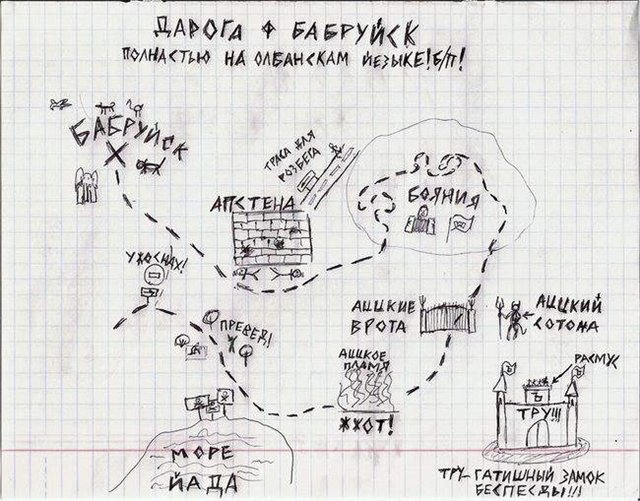 ДАРОГА Ф БАБРУЙСК
ПОЛНАСТЬЮ НА ОЛБАНСКАМ ЙЕЗЫКЕ!Б/П!
БАБРУЙСК
ТРАСА ДЛЯ
РОЗБЕГА
АПСТЕНА
БОЯНИЯ
УЖОСНАХ!
ПРЕВЕД!
АЦЦКИЕ
ВРОТА
АЦЦКИЙ
СОТОНА
АЦЦКОЕ
ПЛАМЯ
ЖЖОТ!
РАСМУС
ТРУ!!!
МОРЕ
ЙАДА
ТРУ-ГАТИШНЫЙ ЗАМОК
БЕСПЕСДЫ!!!